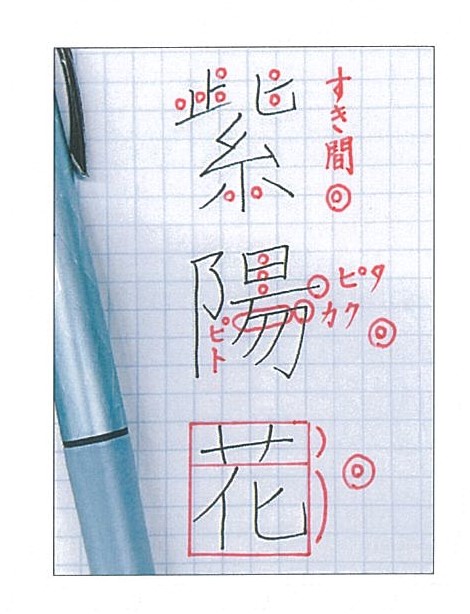 紫
すき間
陽
ピタ
カク
ピト
花